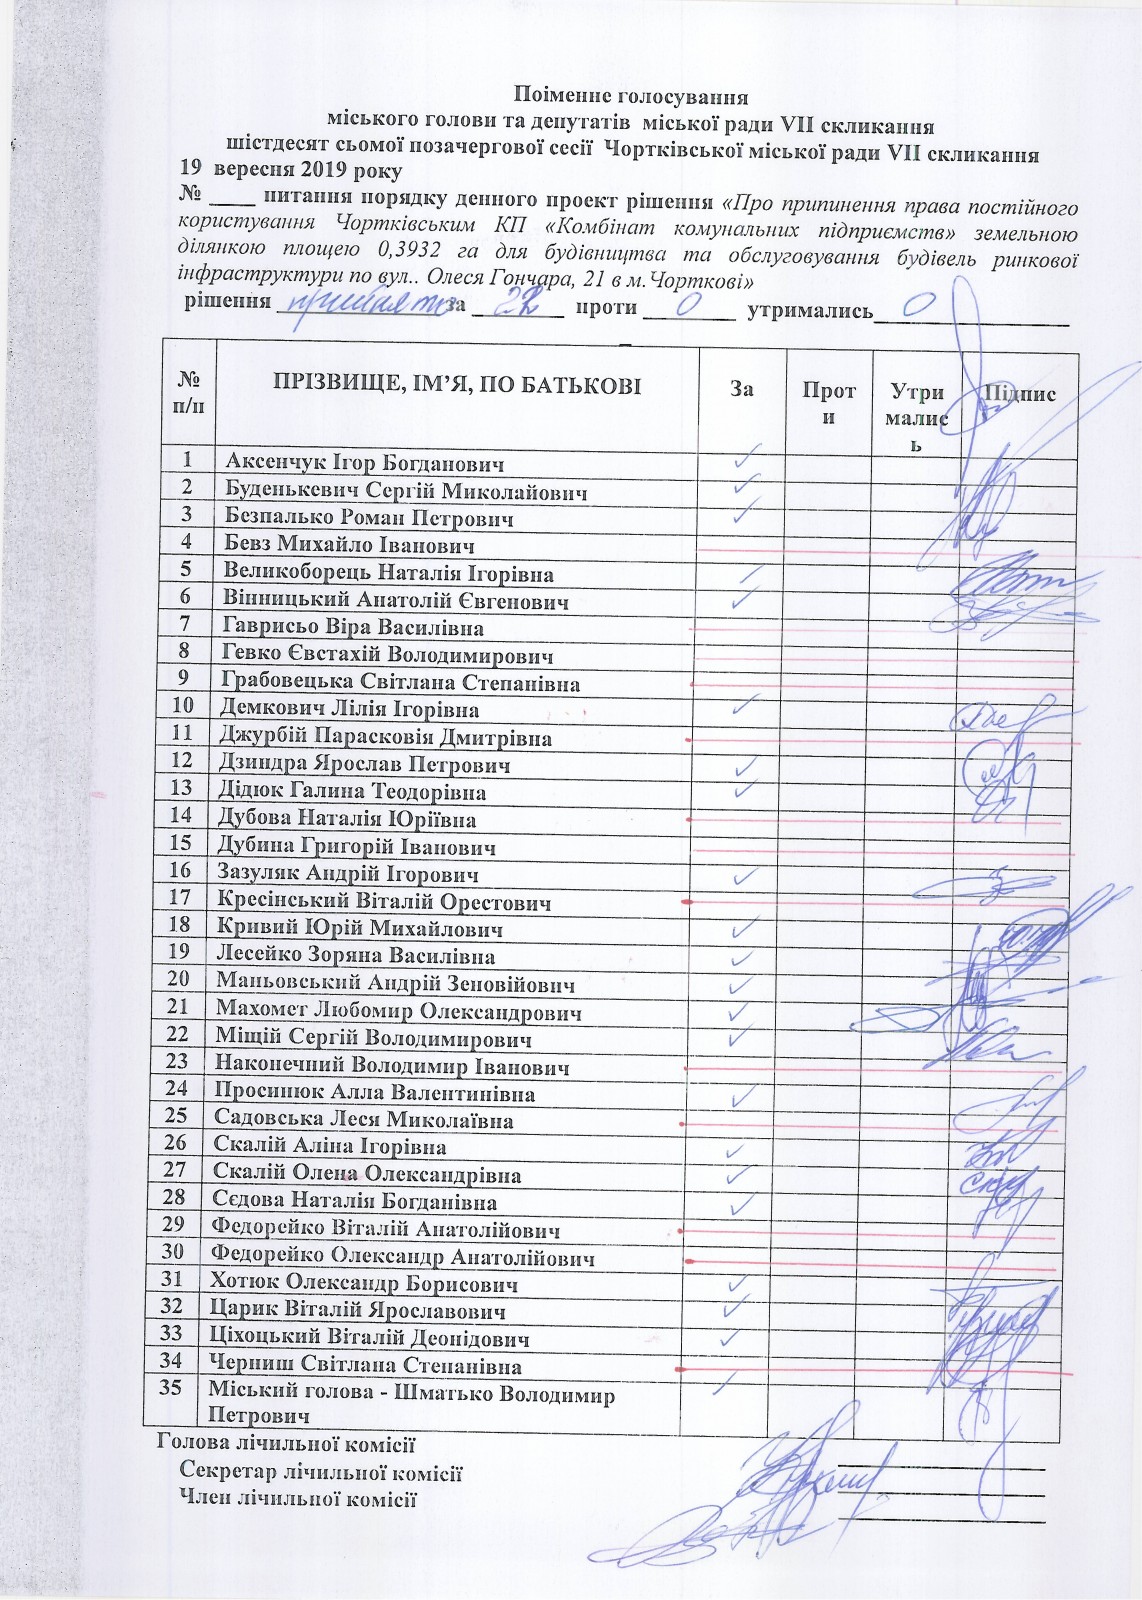 Поіменне голосування
міського голови та депутатів міської ради VII скликання
шістдесят сьомої позачергової сесії Чортківської міської ради VII скликання
19 вересня 2019 року
№ ____ питання порядку денного проект рішення «Про припинення права постійного
користування Чортківським КП «Комбінат комунальних підприємств» земельною
ділянкою площею 0,3932 га для будівництва та обслуговування будівель ринкової
інфраструктури по вул.. Олеся Гончара, 21 в м.Чорткові»
рішення прийнято за 22 проти 0 утримались 0
№ п/п ПРІЗВИЩЕ, ІМ’Я, ПО БАТЬКОВІ За Проти Утрималис ь Підпис
1 Аксенчук Ігор Богданович ✓
2 Буденькевич Сергій Миколайович ✓
3 Безпалько Роман Петрович ✓
4 Бевз Михайло Іванович
5 Великоборець Наталія Ігорівна ✓
6 Вінницький Анатолій Євгенович ✓
7 Гаврисьо Віра Василівна
8 Гевко Євстахій Володимирович
9 Грабовецька Світлана Степанівна
10 Демкович Лілія Ігорівна ✓
11 Джурбій Парасковія Дмитрівна
12 Дзиндра Ярослав Петрович ✓
13 Дідюк Галина Теодорівна ✓
14 Дубова Наталія Юріївна
15 Дубина Григорій Іванович
16 Зазуляк Андрій Ігорович ✓
17 Кресінський Віталій Орестович
18 Кривий Юрій Михайлович ✓
19 Лесейко Зоряна Василівна ✓
20 Маньовський Андрій Зеновійович ✓
21 Махомет Любомир Олександрович ✓
22 Міщій Сергій Володимирович ✓
23 Наконечний Володимир Іванович
24 Просинюк Алла Валентинівна ✓
25 Садовська Леся Миколаївна
26 Скалій Аліна Ігорівна ✓
27 Скалій Олена Олександрівна ✓
28 Сєдова Наталія Богданівна ✓
29 Федорейко Віталій Анатолійович
30 Федорейко Олександр Анатолійович
31 Хотюк Олександр Борисович ✓
32 Царик Віталій Ярославович ✓
33 Ціхоцький Віталій Деонідович ✓
34 Черниш Світлана Степанівна
35 Міський голова - Шматько Володимир ✓
Петрович
Голова лічильної комісії
Секретар лічильної комісії
Член лічильної комісії